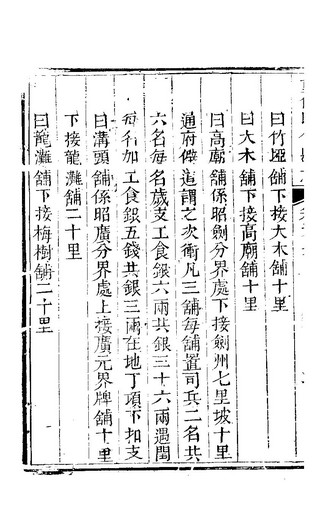 曰竹埡舖下接大木舖十里
曰大木舖下接高廟舖十里
曰高廟舖係昭劍分界處下接劍州七里坡十里
通府僻道謂之次衝凡三舖每舖置司兵二名共
六名每名歲支工食銀六兩共銀三十六兩遇閏
每名加工食銀五錢共銀三兩在地丁項下扣支
曰溝頭舖係昭廣分界處上接廣元界牌舖十里
下接龍灘舖二十里
曰龍灘舖下接梅樹舖二十里